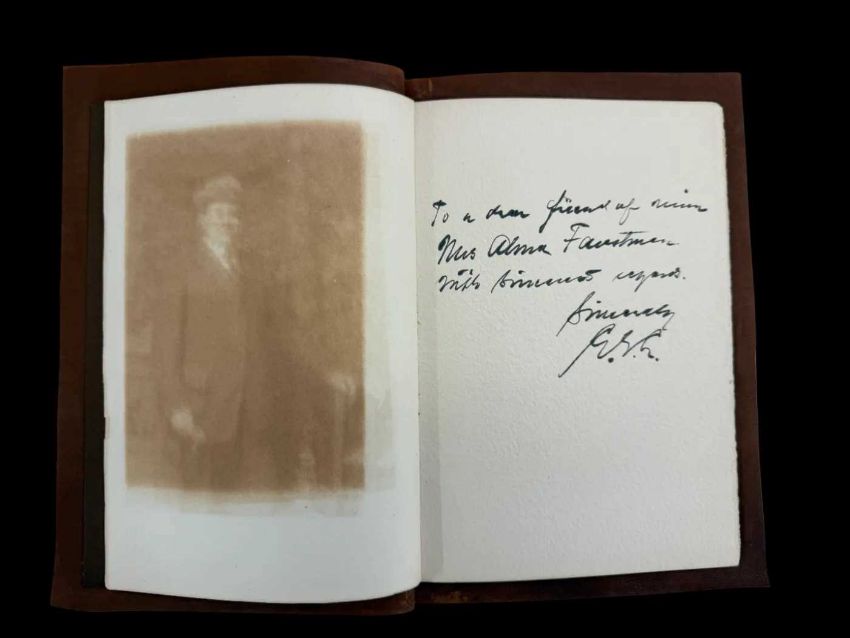 To a dear friend of mine
Mrs Alma Faustman
with sincerest regards.
Sincerely
G.G.G.